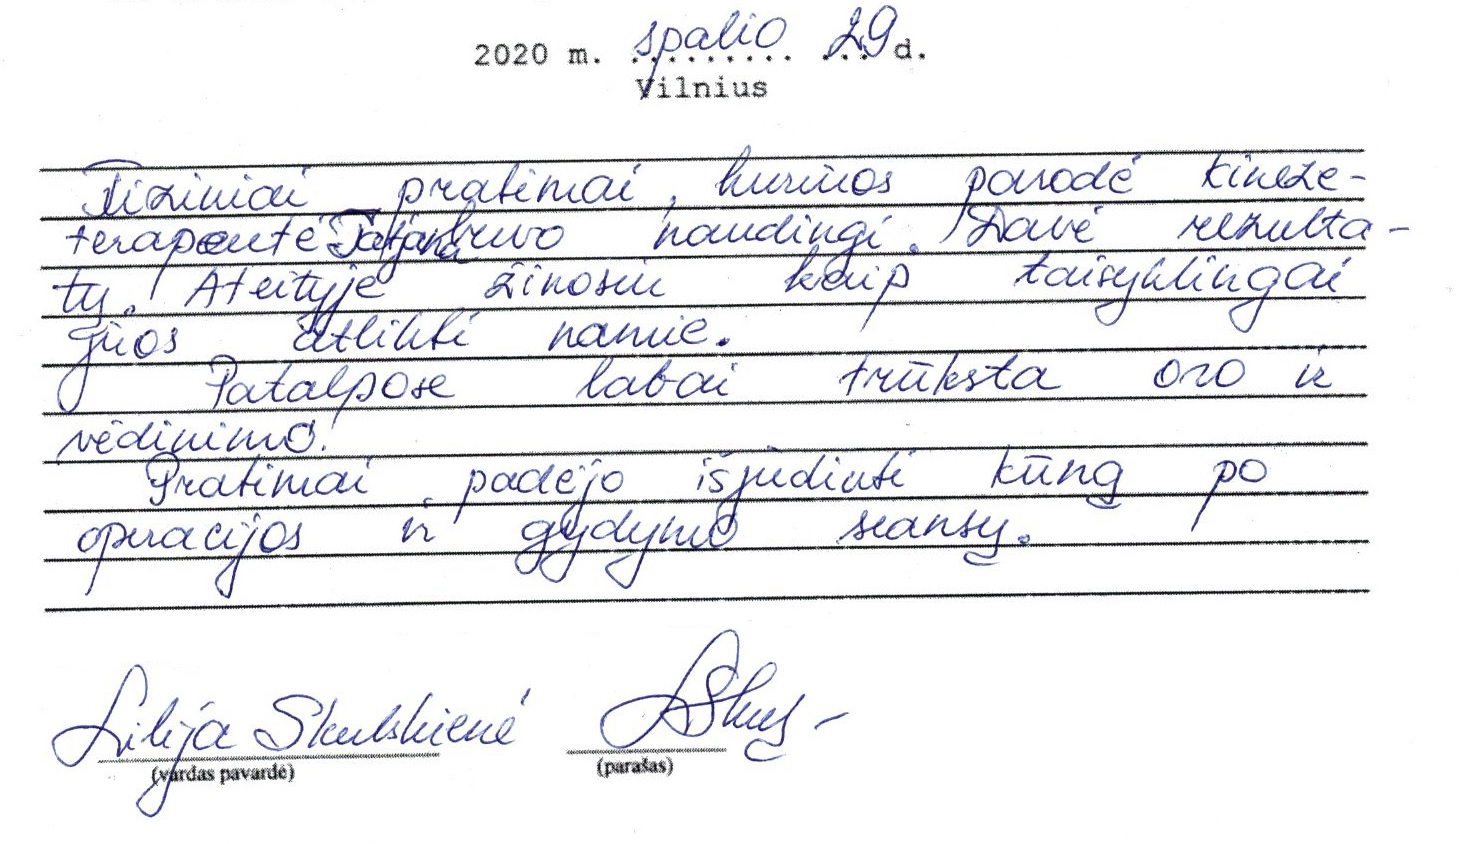 2020 m. spalio 29 d.
Vilnius
Fiziniai pratimai, kuriuos parodė kineze-
terapeutė Tatjana buvo naudingi. Davė rezulta-
tų. Ateityje žinosiu kaip taisyklingai
juos atlikti namie.
Patalpose labai trūksta oro ir
vėdinimo.
Pratimai padėjo išjudinti kūną po
operacijos ir gydymo seansų.
Lilija Skulskienė
(vardas pavardė) (parašas)